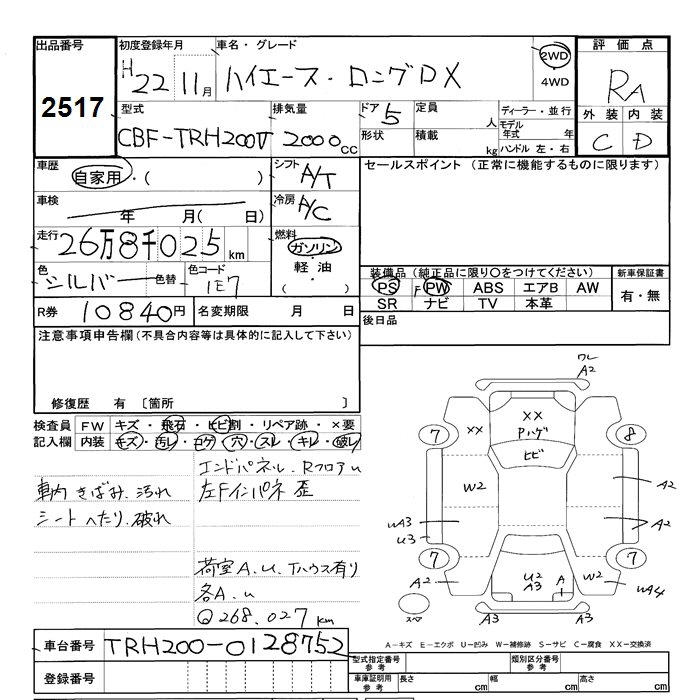 出品番号 初度登録年月 車名・グレード 評価点
2517 H22 11月 ハイエース・ロングDX 2WD 4WD RA
型式 排気量 ドア 定員 ディーラー・並行 外装 内装
CBF-TRH200V 2000cc 5 人 モデル年式 年 C D
形状 積載 kg ハンドル 左・右
車歴 シフト セールスポイント (正常に機能するものに限ります)
自家用・( ) A/T
車検 冷房
年 月(日) A/C
走行 燃料
26万8千025km ガソリン
色 色替 色コード 軽油
シルバー 1E7 ( )
装備品(純正品に限り○をつけてください) 新車保証書
PS F PW ABS エアB AW 有・無
SR ナビ TV 本革
R券 10840円 名変期限 月 日 後日品
注意事項申告欄(不具合内容等は具体的に記入して下さい)
修復歴 有 〔箇所 〕
検査員 FW キズ・飛石・ヒビ割・リペア跡・×要
記入欄 内装 キズ・汚レ・コゲ・穴・スレ・キレ・破レ
エンドパネル、Rフロアu
車内きばみ、汚れ 左Fインパネ 歪
シートへたり、破れ
荷室A、u、Tハウス有り
各A、u
Q268,027km
ワレ
A2
XX
7 XX Pハゲ 8
ヒビ
W2 A2
uA3 A2
u3
7 7
A2 u2 A W2 uA4
A3
スペア A3 A3
A―キズ E―エクボ U―凹み W―補修跡 S―サビ C―腐食 XX―交換済
車台番号 TRH200-0128752
型式指定番号 参考 類別区分番号 参考
登録番号 車庫証明用 参考 長さ cm 幅 cm 高さ cm